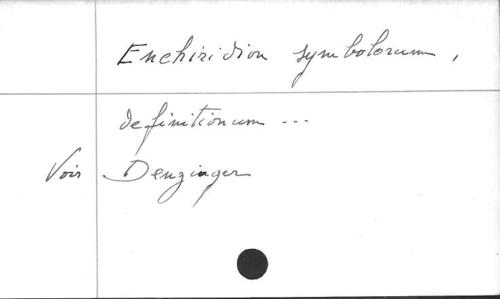 Enchiridion symbolorum,
definitionum ...
Voir Denzinger